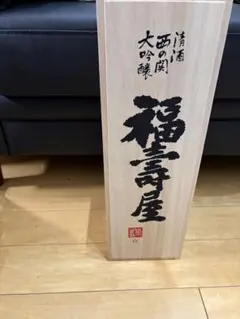 清酒
西の関
大吟醸
福寿屋